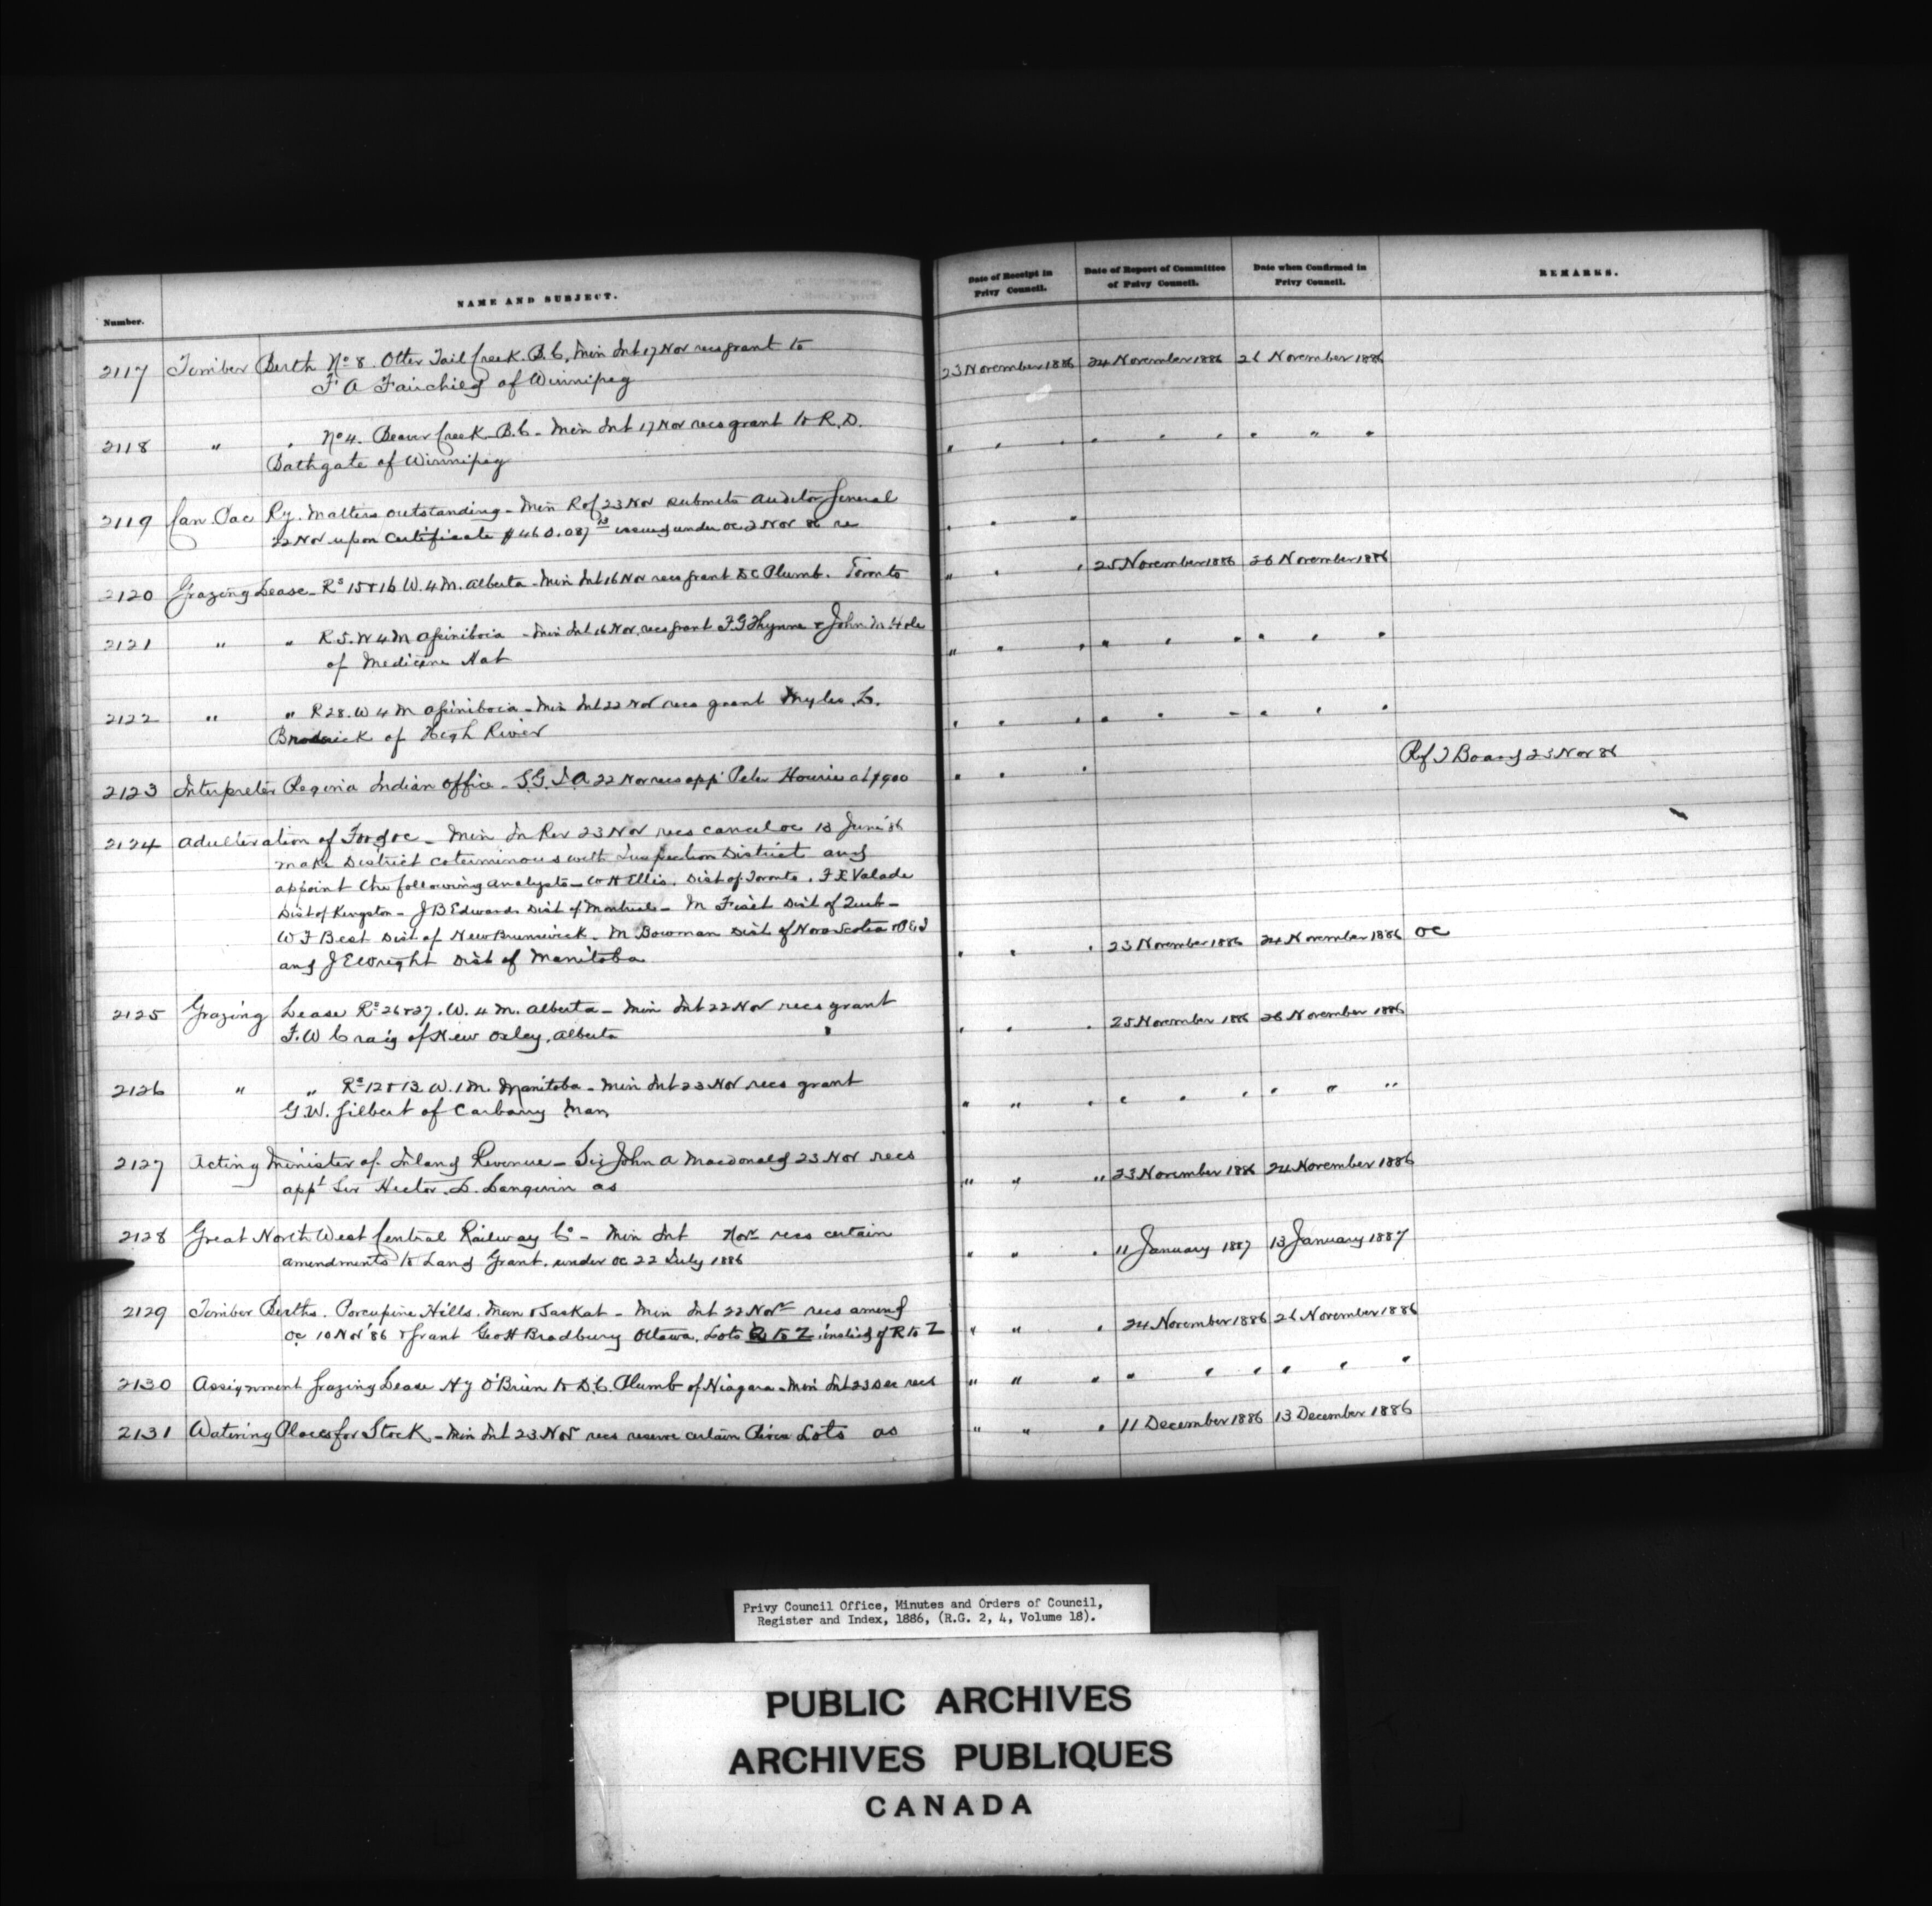 Number. NAME AND SUBJECT. Date of Receipt in Privy Council. Date of Report of Committee of Privy Council. Date when Confirmed in Privy Council. REMARKS.
2117 Timber Berth No 8. Otter Tail Creek. B.C, Min Int 17 Nov recs grant to 23 November 1886 24 November 1886 26 November 1886
F A Fairchild of Winnipeg
2118 " " No 4. Beaver Creek B.C - Min Int 17 Nov recs grant to R. D. " " " " " " " " "
Bathgate of Winnipeg
2119 Can. Pac Ry. Matters outstanding - Min R of 23 Nov submits Auditor General " " "
22 Nov upon Certificate $460.087 13 issued under OC 2 Nov 86 re
2120 Grazing Lease - Rs 15 & 16 W. 4 M. Alberta - Min Int 16 Nov recs grant D C Plumb. Toronto " " " 25 November 1886 26 November 1886
2121 " " R 5. W 4 M Assiniboia - Min Int 16 Nov. recs grant F. G Thynne & John M Hole " " " " " " " " "
of Medicine Hat
2122 " " R 28. W 4 M Assiniboia - Min Int 22 Nov recs grant Myles L. " " " " " - " " "
Broderick of High River
2123 Interpreter Regina Indian Office - S. G. I. A 22 Nov recs appt Peter Hourie at $900 " " " Ref T Board 23 Nov 86
2124 Adulteration of Food OC - Min In Rev 23 Nov recs cancel OC 13 June 86
make District coterminous with Inspection District and
appoint the following Analysts - W H Ellis. Dist of Toronto. F X Valade
Dist of Kingston - J B Edwards Dist of Montreal - M Fiset Dist of Queb -
W F Best Dist of New Brunswick. M Bowman Dist of Nova Scotia & P E I
and J E Wright Dist of Manitoba " " " 23 November 1886 24 November 1886 OC
2125 Grazing Lease Rs 26 & 27. W. 4 M. Alberta - Min Int 22 Nov recs grant " " " 25 November 1886 26 November 1886
F. W Craig of New Oxley, Alberta
2126 " " Rs 12 & 13. W. 1 M. Manitoba - Min Int 23 Nov recs grant " " " " " " " " "
G. W. Gilbert of Carberry Man
2127 Acting Minister of Inland Revenue - Sir John A Macdonald 23 Nov recs " " " 23 November 1886 24 November 1886
appt Sir Hector. L. Langevin as
2128 Great North West Central Railway Co - Min Int Nov recs certain " " " 11 January 1887 13 January 1887
amendments to Land Grant. under OC 22 July 1886
2129 Timber Berths. Porcupine Hills. Man & Saskat - Min Int 22 Nov recs amend " " " 24 November 1886 26 November 1886
OC 10 Nov '86 & grant Geo H Bradbury Ottawa. Lots Q to Z instead of R to Z
2130 Assignment Grazing Lease Hy O'Brien to D. C. Plumb of Niagara - Min Int 23 Dec recs " " " " " " " " "
2131 Watering Places for Stock - Min Int 23 Nov recs reserve certain River Lots as " " " 11 December 1886 13 December 1886
Privy Council Office, Minutes and Orders of Council,
Register and Index, 1886, (R.G. 2, 4, Volume 18).
PUBLIC ARCHIVES
ARCHIVES PUBLIQUES
CANADA